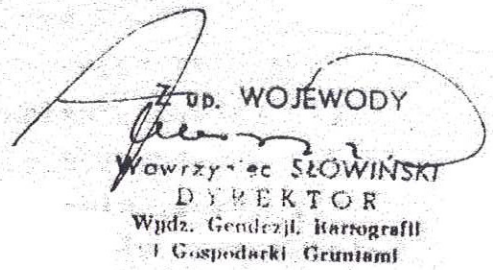 Z up. WOJEWODY
Wawrzyniec SŁOWIŃSKI
DYREKTOR
Wydz. Geodezji, Kartografii
i Gospodarki Gruntami